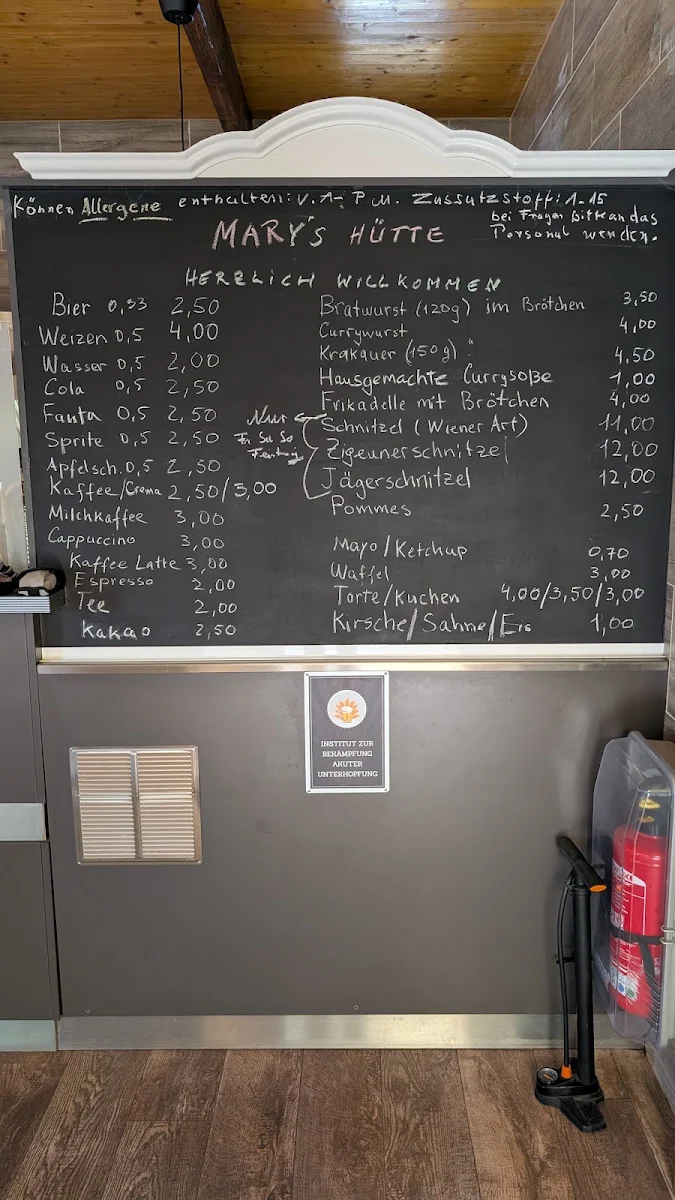 Können Allergene enthalten: V. A - P u. Zussatzstoff: 1-15
bei Fragen Bitte an das
Personal wenden.
MARY'S HÜTTE
HERZLICH WILLKOMMEN
Bier 0,33 2,50
Weizen 0,5 4,00
Wasser 0,5 2,00
Cola 0,5 2,50
Fanta 0,5 2,50
Sprite 0,5 2,50
Apfelsch. 0,5 2,50
Kaffee/Crema 2,50/3,00
Milchkaffee 3,00
Cappuccino 3,00
Kaffee Latte 3,00
Espresso 2,00
Tee 2,00
Kakao 2,50
Bratwurst (120g) im Brötchen 3,50
Currywurst 4,00
Krakauer (150g) " 4,50
Hausgemachte Currysoße 1,00
Frikadelle mit Brötchen 4,00
Nur
Fr Sa So
Feiertag
Schnitzel (Wiener Art) 11,00
Zigeunerschnitzel 12,00
Jägerschnitzel 12,00
Pommes 2,50
Mayo/Ketchup 0,70
Waffel 3,00
Torte/Kuchen 4,00/3,50/3,00
Kirsche/Sahne/Eis 1,00
INSTITUT ZUR
BEKÄMPFUNG
AKUTER
UNTERHOPFUNG